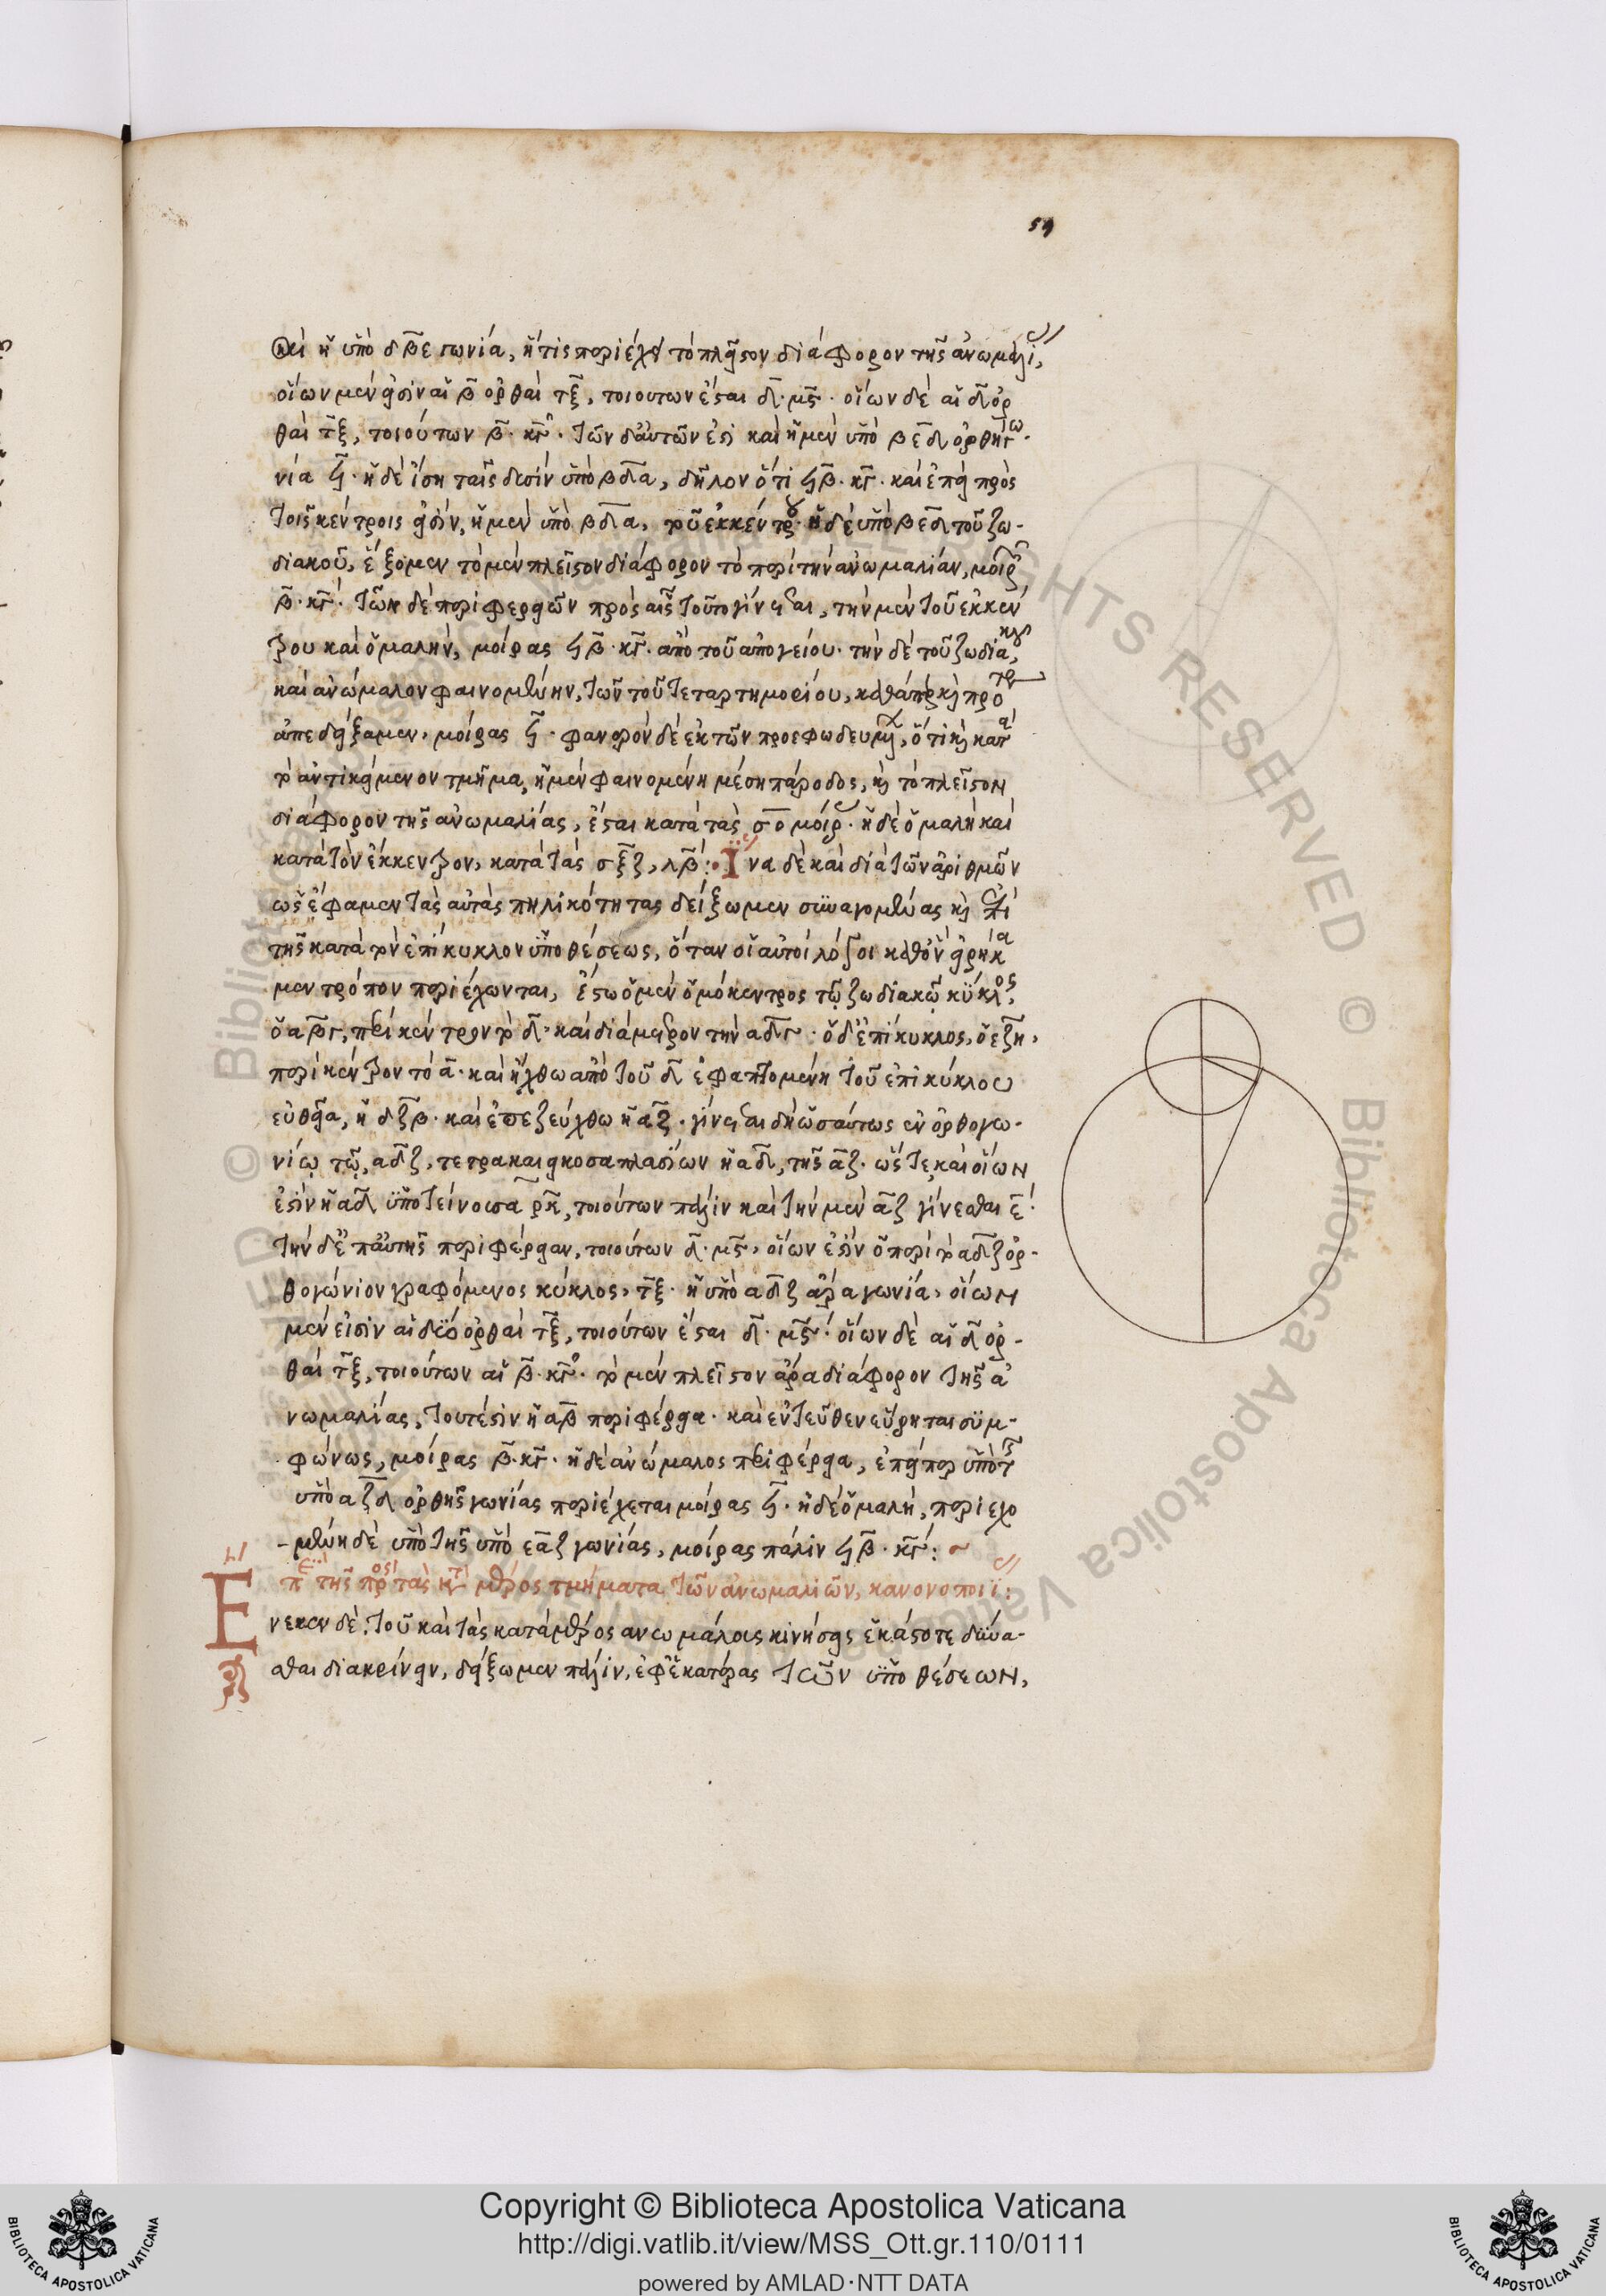 59
καὶ ἡ ὑπὸ δβε γωνία, ἥτις περιέχει τὸ πλεῖστον διάφορον τῆς ἀνωμαλί,
οἵων μέν εἰσιν αἱ β ὀρθαὶ τξ, τοιούτων ἔσται δ. μς. οἵων δὲ αἱ δ ὀρ
θαὶ τξ, τοιούτων β. κγ. τῶν δ' αὐτῶν ἐστὶ καὶ ἡ μὲν ὑπὸ βεδ ὀρθὴ γω
νία ϟ. ἡ δὲ ἴση ταῖς δεσὶν ὑπὸ βδα, δῆλον ὅτι ϟβ. κγ. καὶ ἐπεὶ πρὸς
τοῖς κέντροις εἰσὶν, ἡ μὲν ὑπὸ βδα, τοῦ ἐκκέντρου. ἡ δὲ ὑπὸ βεδ τοῦ ζω-
διακοῦ, ἕξομεν τὸ μὲν πλεῖστον διάφορον τὸ περὶ τὴν ἀνωμαλίαν, μοιρ
β. κγ. τῶν δὲ περιφερειῶν πρὸς αἷς τοῦτο γίνεται, τὴν μὲν τοῦ ἐκκέν
τρου καὶ ὁμαλὴν, μοίρας ϟβ. κγ. ἀπὸ τοῦ ἀπογείου. τὴν δὲ τοῦ ζωδιακοῦ,
καὶ ἀνώμαλον φαινομένην, τῶν τοῦ τεταρτημορίου, καθάπερ καὶ πρότερ
ἀπεδείξαμεν, μοίρας ϟ. φανερὸν δὲ ἐκ τῶν προεφωδευμ, ὅτι καὶ κατὰ
τὸ ἀντικείμενον τμῆμα, ἡ μὲν φαινομένη μέση πάροδος, καὶ τὸ πλεῖστον
διάφορον τῆς ἀνωμαλίας, ἔσται κατὰ τὰς σο μοίρ. ἡ δὲ ὁμαλὴ καὶ
κατὰ τὸν ἔκκεντρον, κατὰ τὰς σξζ, λβ: Ἵνα δὲ καὶ διὰ τῶν ἀριθμῶν
ὡς ἔφαμεν τὰς αὐτὰς πηλικότητας δείξωμεν συναγομένας καὶ ἐπὶ
τῆς κατὰ τὸν ἐπίκυκλον ὑποθέσεως, ὅταν οἱ αὐτοὶ λόγοι καθ' ὃν εἰρήκα
μεν τρόπον περιέχωνται, ἔστω ὁ μὲν ὁμόκεντρος τῷ ζωδιακῷ κύκλος,
ὁ αβγ, περὶ κέντρον τὸ δ. καὶ διάμετρον τὴν αδγ. ὁ δ' ἐπίκυκλος, ὁ εζη,
περὶ κέντρον τὸ α. καὶ ἤχθω ἀπὸ τοῦ δ ἐφαπτομένη τοῦ ἐπικύκλου
εὐθεῖα, ἡ δζβ. καὶ ἐπεζεύχθω ἡ αζ. γίνεται δὴ ὡσαύτως ἐν ὀρθογω-
νίῳ τῷ, αδζ, τετρακαιεικοσαπλασίων ἡ αδ, τῆς αζ. ὥστε καὶ οἵων
ἐστὶν ἡ αδ ὑποτείνουσα ρκ, τοιούτων πάλιν καὶ τὴν μὲν αζ γίνεσθαι ε.
τὴν δ' ἐπ' αὐτῆς περιφέρειαν, τοιούτων δ. μς, οἵων ἐστὶν ὁ περὶ τὸ αδζ ὀρ-
θογώνιον γραφόμενος κύκλος, τξ. ἡ ὑπὸ αδζ ἄρα γωνία, οἵων
μέν εἰσιν αἱ δύο ὀρθαὶ τξ, τοιούτων ἔσται δ. μς. οἵων δὲ αἱ δ ὀρ-
θαὶ τξ, τοιούτων αἱ β. κγ. τὸ μὲν πλεῖστον ἄρα διάφορον τῆς ἀ
νωμαλίας, τουτέστιν ἡ αβ περιφέρεια. καὶ ἐντεῦθεν εὕρηται συμ-
φώνως, μοίρας β. κγ. ἡ δὲ ἀνώμαλος περιφέρεια, ἐπείπερ ὑπὸ τῆς
ὑπὸ αζδ ὀρθῆς γωνίας περιέχεται μοίρας ϟ. ἡ δὲ ὁμαλὴ, περιεχο
-μένη δὲ ὑπὸ τῆς ὑπὸ εαζ γωνίας, μοίρας πάλιν ϟβ. κγ: ~
Ἐπὶ τῆς πρὸς τὰς κατὰ μέρος τμήματα τῶν ἀνωμαλιῶν, κανονοποιΐ:
Ενεκεν δὲ τοῦ καὶ τὰς κατὰ μέρος ἀνωμάλους κινήσεις ἑκάστοτε δύνα-
σθαι διακρίνειν, δείξωμεν πάλιν, ἐφ' ἑκατέρας τῶν ὑποθέσεων,
© Biblioteca Apostolica Vaticana
ALL RIGHTS RESERVED
Copyright © Biblioteca Apostolica Vaticana
http://digi.vatlib.it/view/MSS_Ott.gr.110/0111
powered by AMLAD·NTT DATA
BIBLIOTECA APOSTOLICA VATICANA
BIBLIOTECA APOSTOLICA VATICANA